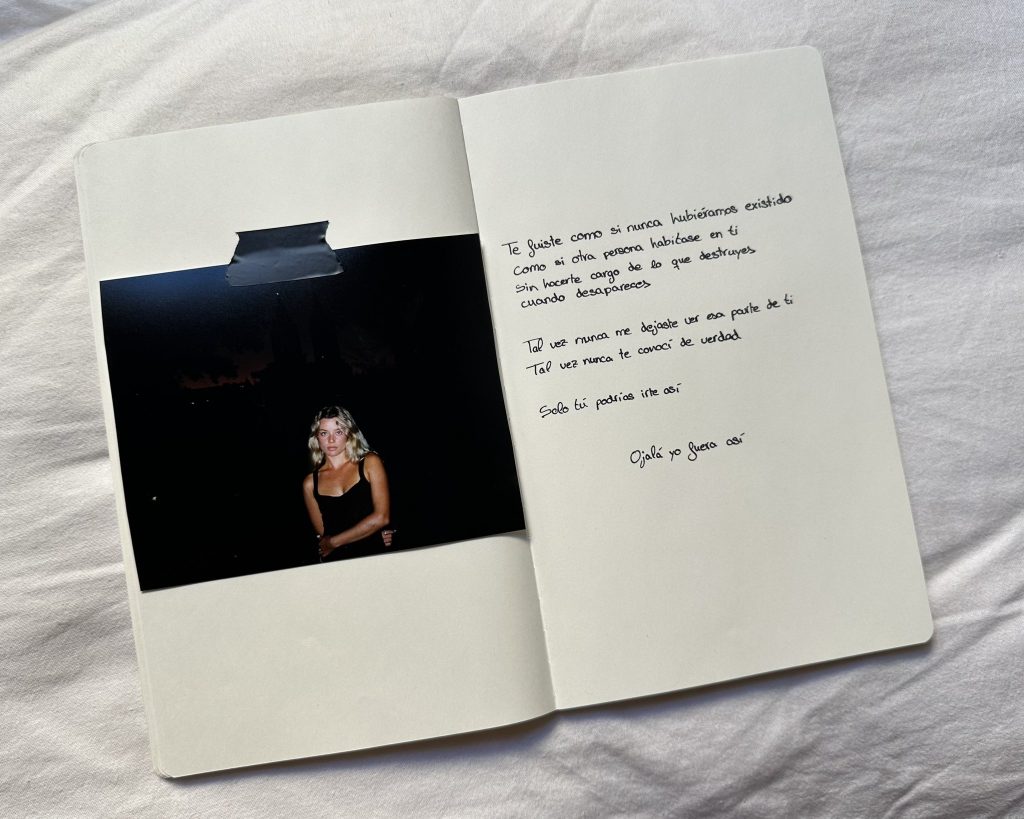 Te fuiste como si nunca hubiéramos existido
como si otra persona habitase en ti
Sin hacerte cargo de lo que destruyes
cuando desapareces
Tal vez nunca me dejaste ver esa parte de ti
Tal vez nunca te conocí de verdad
Solo tú podrías irte así
Ojalá yo fuera así